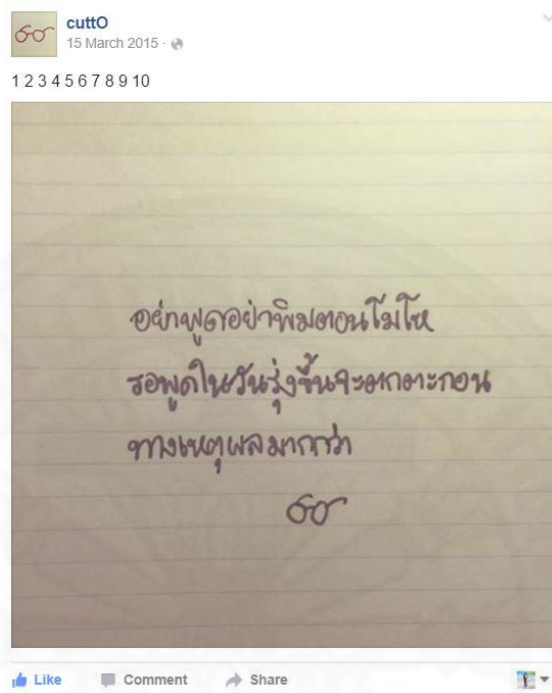 cuttO
15 March 2015
1 2 3 4 5 6 7 8 9 10
อย่าพูดอย่าพิมตอนโมโห
รอพูดในวันรุ่งขึ้นจะตกตะกอน
ทางเหตุผลมากกว่า
Like Comment Share